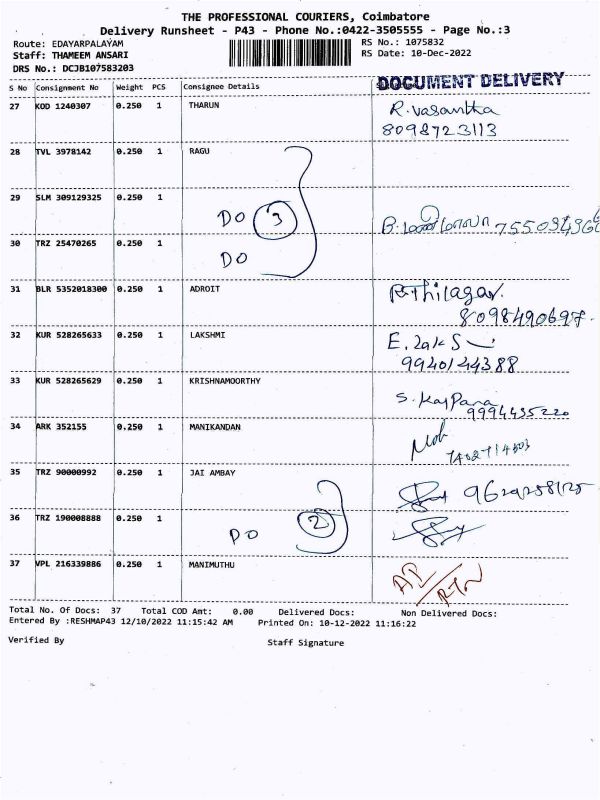 THE PROFESSIONAL COURIERS, Coimbatore
Delivery Runsheet - P43 - Phone No.:0422-3505555 - Page No.:3
Route: EDAYARPALAYAM
RS No.: 1075832
Staff: THAMEEM ANSARI
RS Date: 10-Dec-2022
DRS No.: DCJB107583203
S No Consignment No Weight PCS Consignee Details DOCUMENT DELIVERY
27 KOD 1240307 0.250 1 THARUN R. Vasantha
8098723113
28 TVL 3978142 0.250 1 RAGU
29 SLM 309129325 0.250 1
DO 3
30 TRZ 25470265 0.250 1
DO
31 BLR 5352018300 0.250 1 ADROIT R. Thilagar.
8098490697.
32 KUR 528265633 0.250 1 LAKSHMI E. Lak S
9940144388
33 KUR 528265629 0.250 1 KRISHNAMOORTHY
S. Kalpana
9994495220
34 ARK 352155 0.250 1 MANIKANDAN
35 TRZ 90000992 0.250 1 JAI AMBAY 9629258125
36 TRZ 190008888 0.250 1 DO 2
37 VPL 216339886 0.250 1 MANIMUTHU AP/RTN
Total No. Of Docs: 37 Total COD Amt: 0.00 Delivered Docs: Non Delivered Docs:
Entered By :RESHMAP43 12/10/2022 11:15:42 AM Printed On: 10-12-2022 11:16:22
Verified By Staff Signature